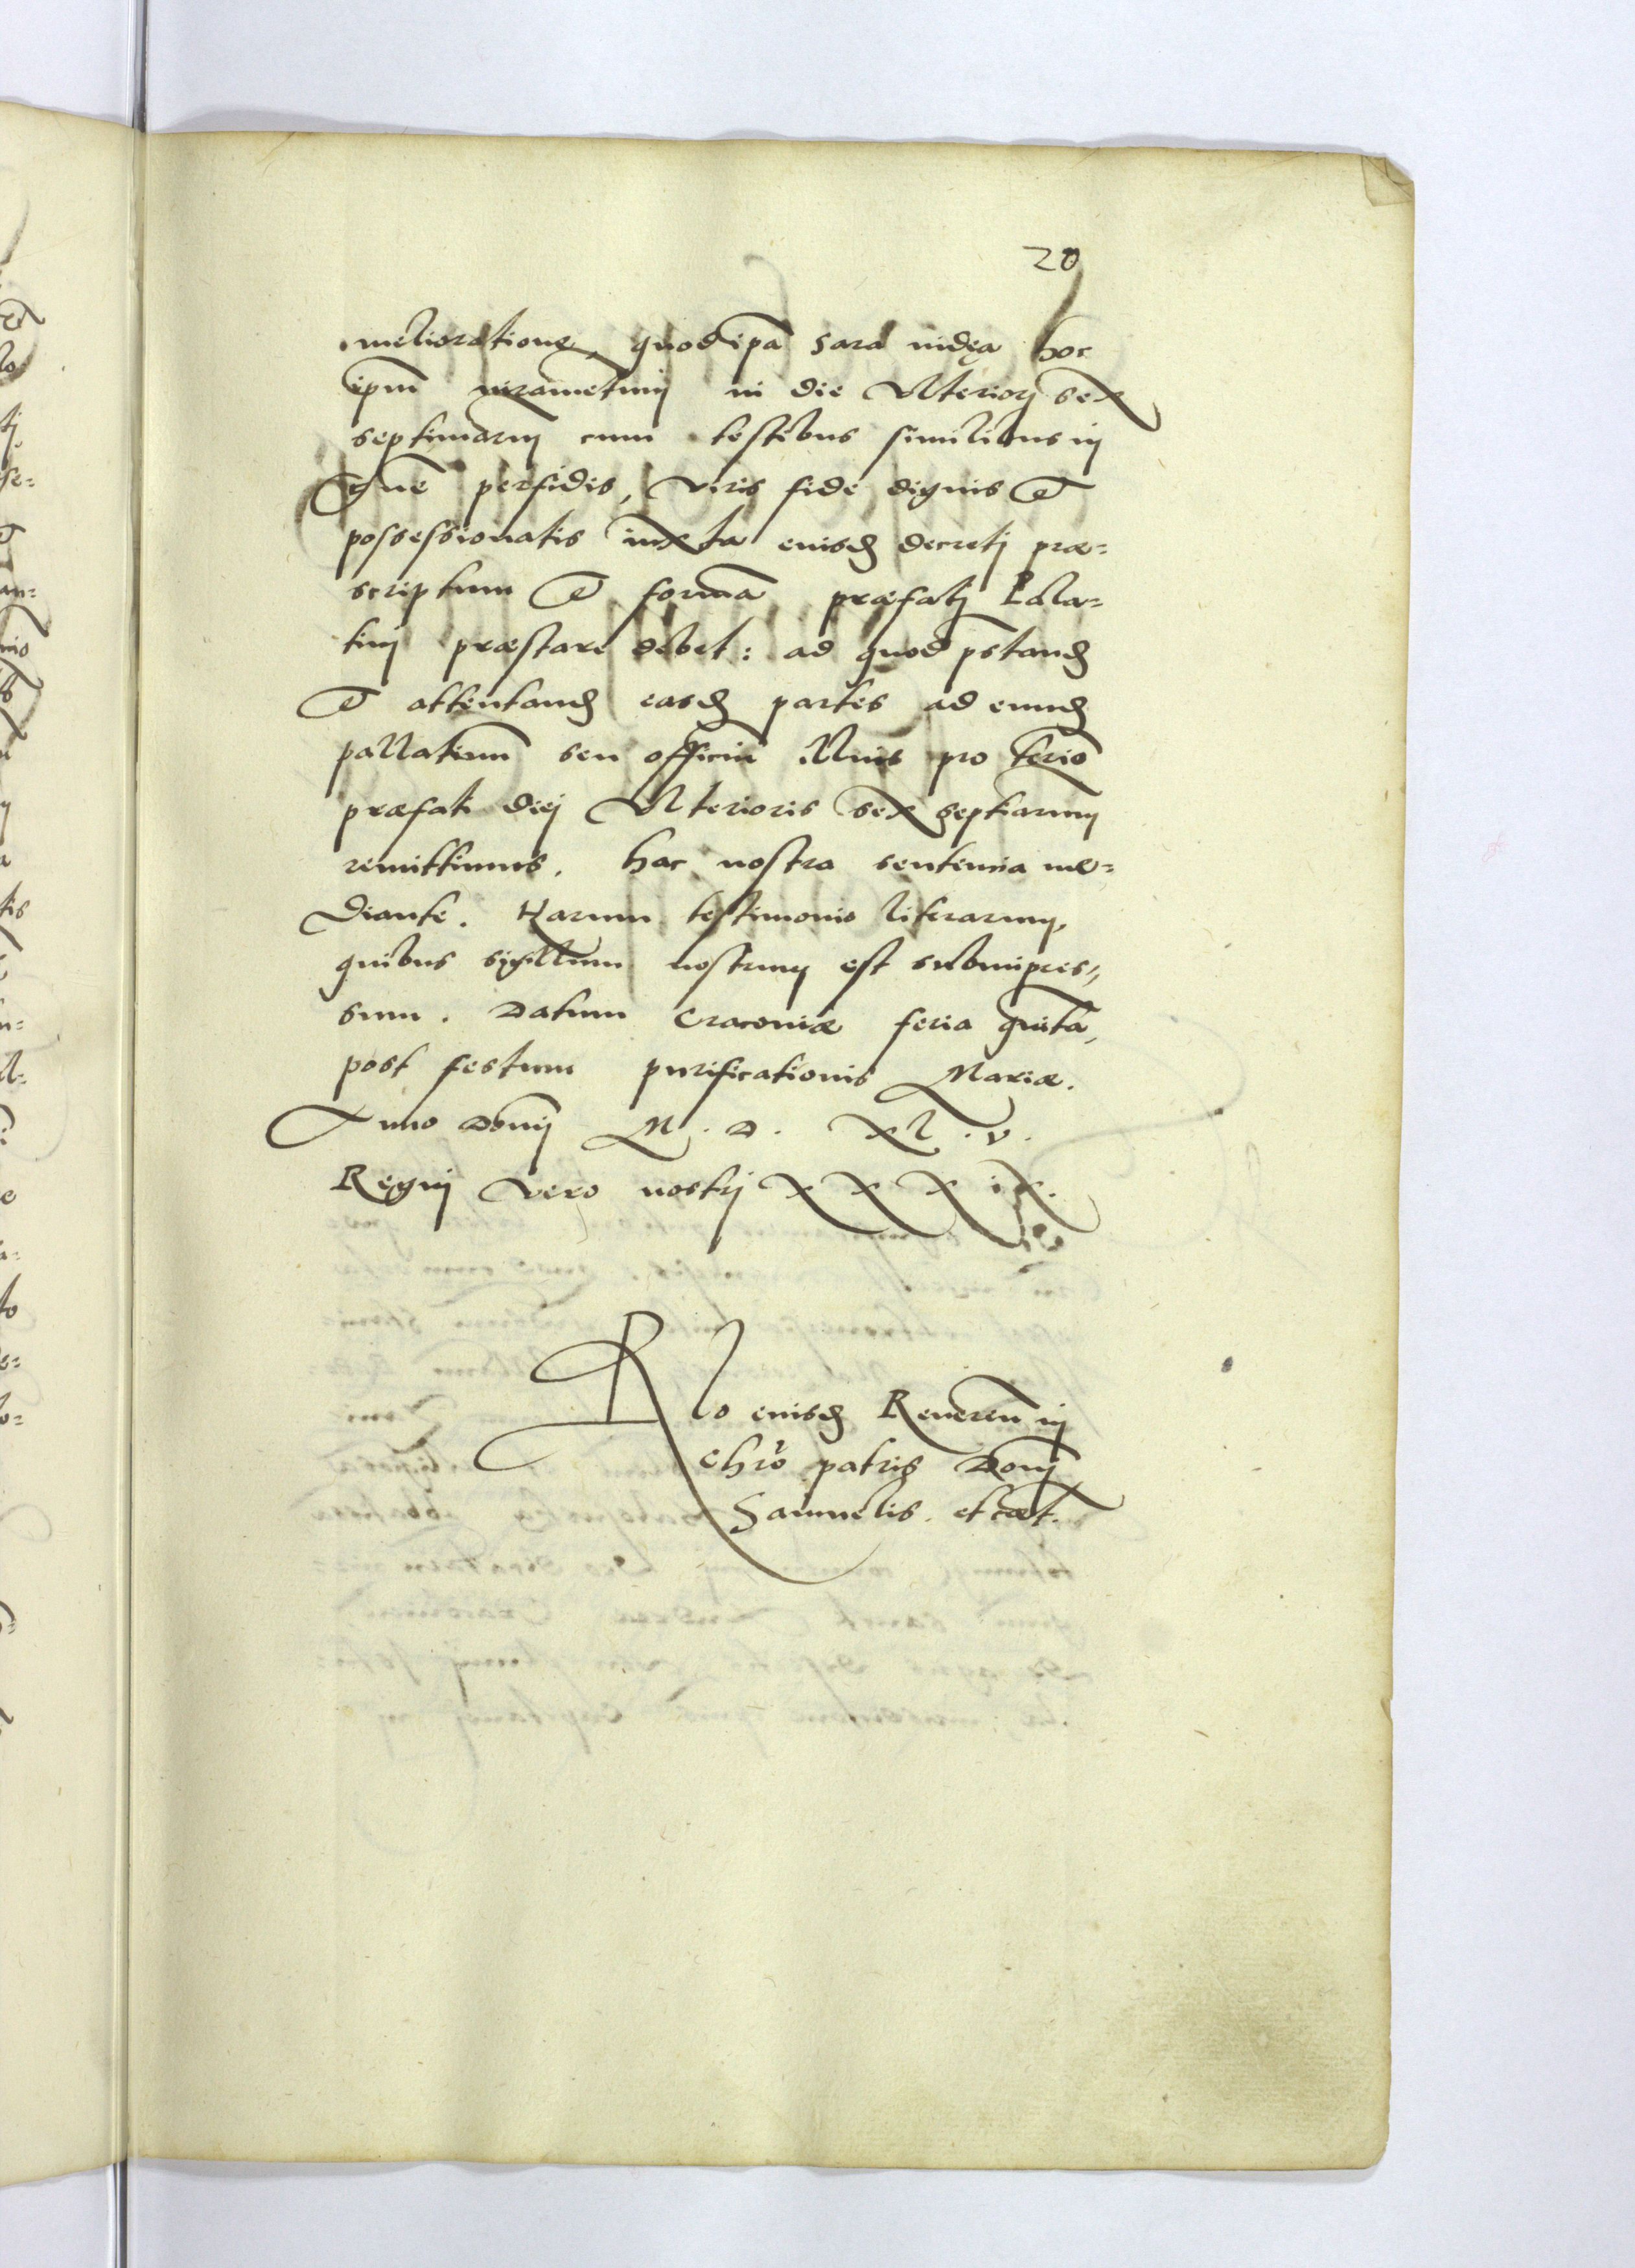 20
melioratione, quod ipā Sara iudęa hoc
ipm̄ iurametum in die Vlteriorj sex
septimarum cum testibus similibus in
gn̄e perfidis, viris fide dignis et
possessionatis iuxta eiusd decretj præ=
scriptum et formā præfatj Pala=
tinj præstare debet: ad quod pstand
et attentand easd partes ad eiusd
pallatium seu officiū illius pro termio
præfati diej Vlterioris sex septiarum
remittimus. Hac nostra sententia me=
diante. Harum testimonio literarum,
quibus sigillum nostrum est subimpres=
sum. Datum Cracoviæ feria quīta,
post festum purificationis Mariæ.
Anno Domj M. D. XL. V.
Regnj vero nostrj XXXIX.
Rlo eiusd Reueren in
Chrō patris Domj
Samuelis. et cæt.